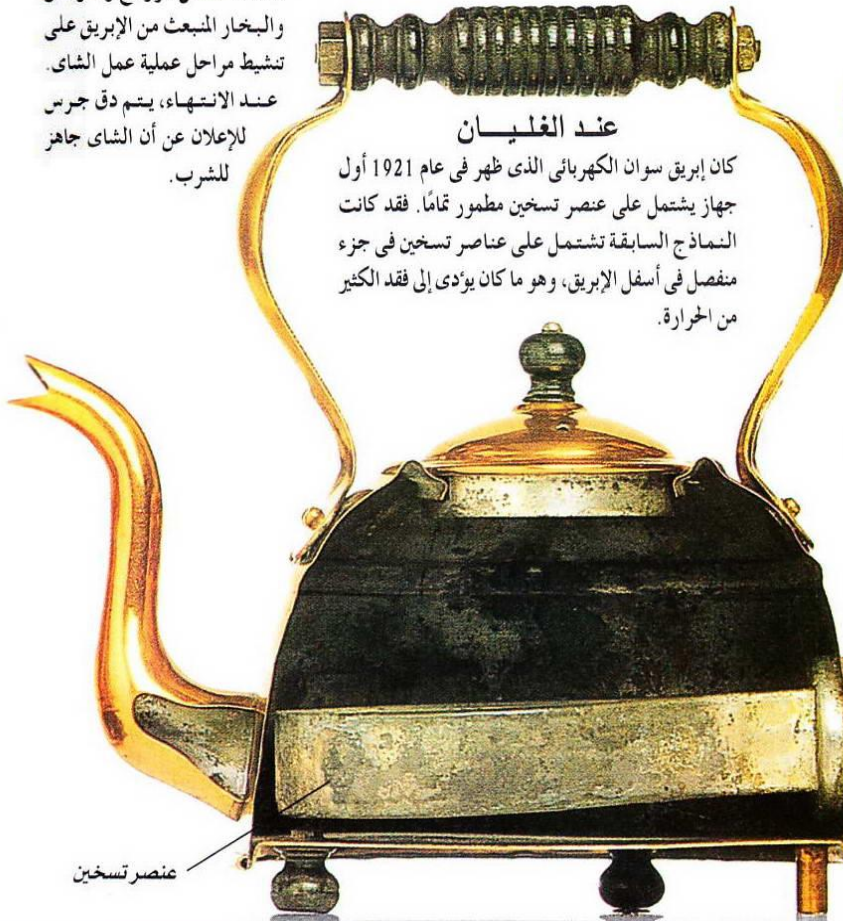 والبخار المنبعث من الإبريق على
تنشيط مراحل عملية عمل الشاى.
عند الانتهاء، يتم دق جرس
للإعلان عن أن الشاى جاهز
للشرب.
عند الغليان
كان إبريق سوان الكهربائى الذى ظهر فى عام 1921 أول
جهاز يشتمل على عنصر تسخين مطمور تمامًا. فقد كانت
النماذج السابقة تشتمل على عناصر تسخين فى جزء
منفصل فى أسفل الإبريق، وهو ما كان يؤدى إلى فقد الكثير
من الحرارة.
عنصر تسخين